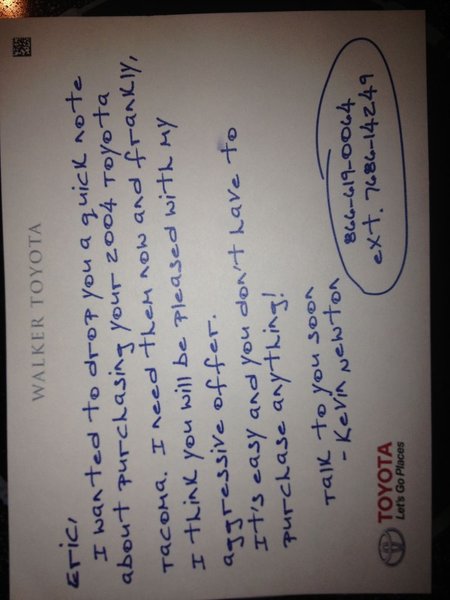 WALKER TOYOTA
Eric,
I wanted to drop you a quick note
about purchasing your 2004 Toyota
Tacoma. I need them now and frankly,
I think you will be pleased with my
aggressive offer.
It's easy and you don't have to
purchase anything!
Talk to you soon
- Kevin Newton
866-619-0064
ext. 7686-14249
TOYOTA
Let's Go Places